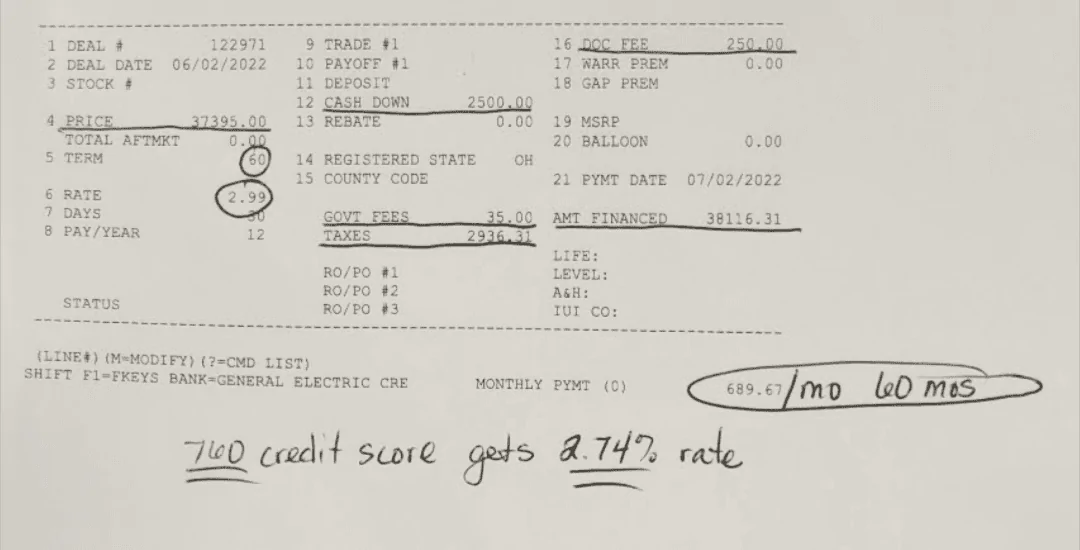 1 DEAL # 122971 9 TRADE #1 16 DOC FEE 250.00
2 DEAL DATE 06/02/2022 10 PAYOFF #1 17 WARR PREM 0.00
3 STOCK # 11 DEPOSIT 18 GAP PREM
12 CASH DOWN 2500.00
4 PRICE 37395.00 13 REBATE 0.00 19 MSRP
TOTAL AFTMKT 0.00 20 BALLOON 0.00
5 TERM 60 14 REGISTERED STATE OH
15 COUNTY CODE 21 PYMT DATE 07/02/2022
6 RATE 2.99
7 DAYS 30 GOVT FEES 35.00 AMT FINANCED 38116.31
8 PAY/YEAR 12 TAXES 2936.31
LIFE:
RO/PO #1 LEVEL:
RO/PO #2 A&H:
STATUS RO/PO #3 IUI CO:
(LINE#) (M=MODIFY) (?=CMD LIST)
SHIFT F1=FKEYS BANK=GENERAL ELECTRIC CRE MONTHLY PYMT (0) 689.67/mo 60 mos
760 credit score gets 2.74% rate